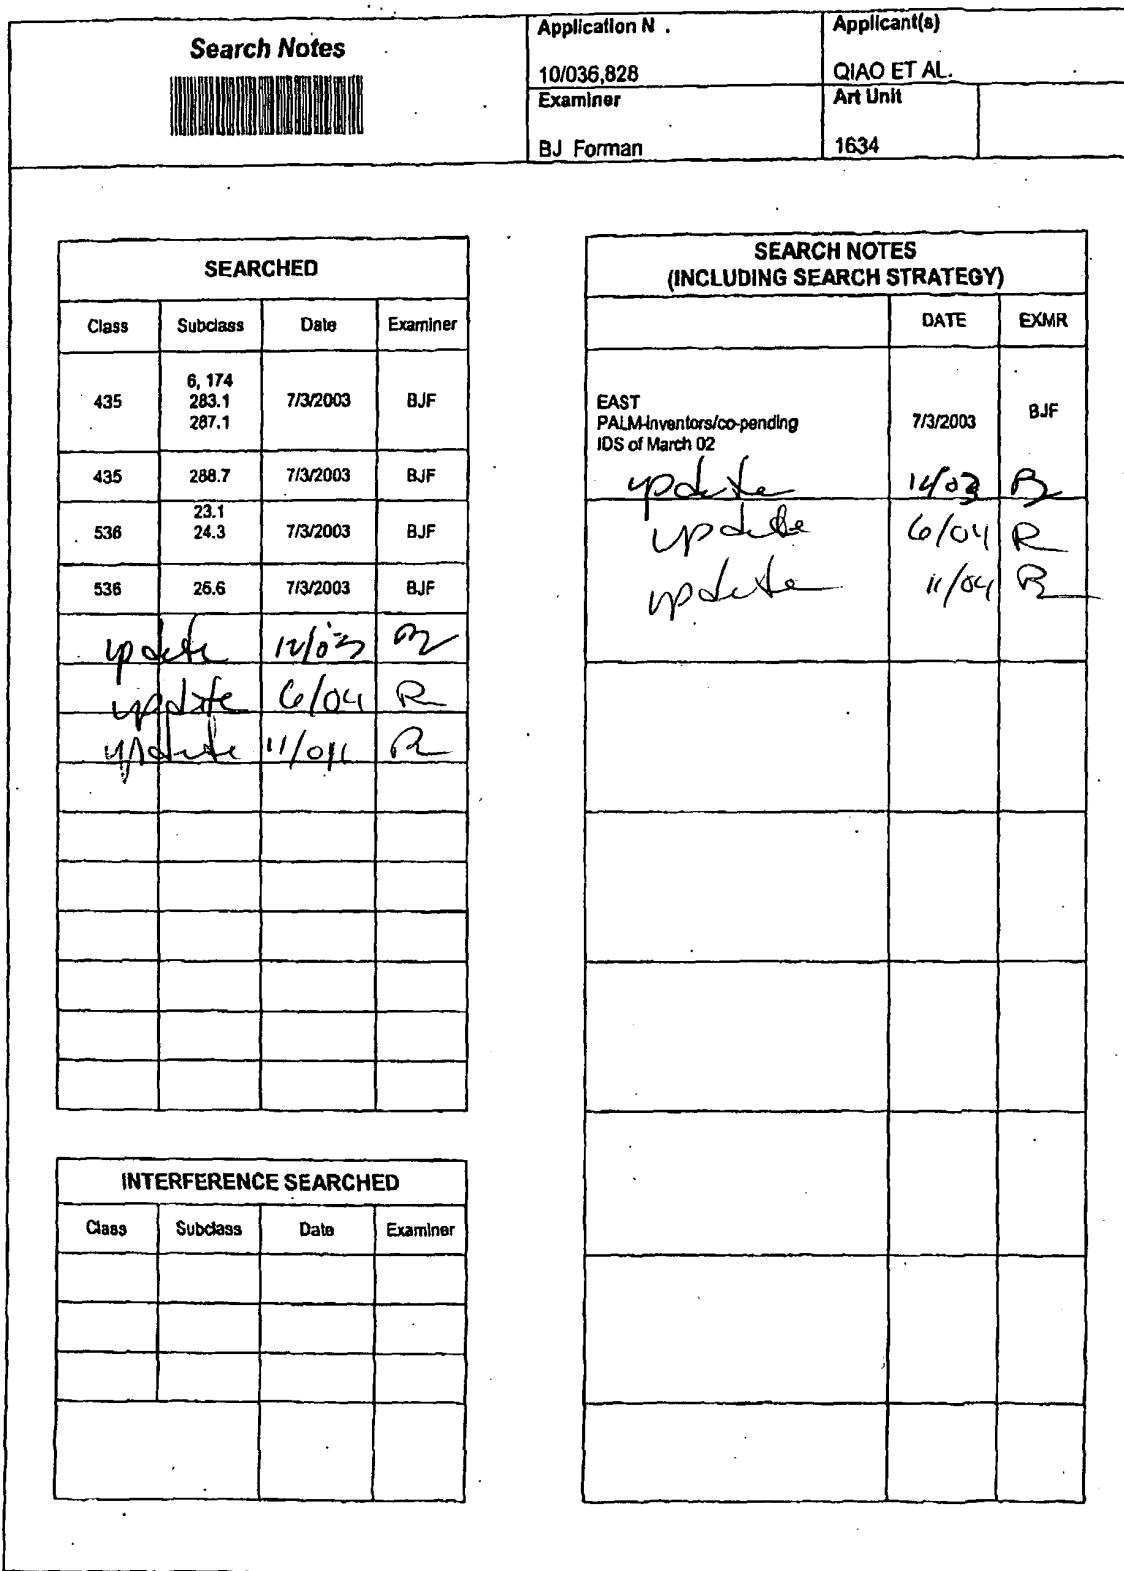 Search Notes
Application N .
10/036,828
Applicant(s)
QIAO ET AL.
Examiner
BJ Forman
Art Unit
1634
SEARCHED
Class Subclass Date Examiner
435 6, 174 283.1 287.1 7/3/2003 BJF
435 288.7 7/3/2003 BJF
536 23.1 24.3 7/3/2003 BJF
536 25.6 7/3/2003 BJF
update 12/03
update 6/04
update 11/04
INTERFERENCE SEARCHED
Class Subclass Date Examiner
SEARCH NOTES
(INCLUDING SEARCH STRATEGY)
DATE EXMR
EAST
PALM-inventors/co-pending 7/3/2003 BJF
IDS of March 02
update 12/03
update 6/04
update 11/04